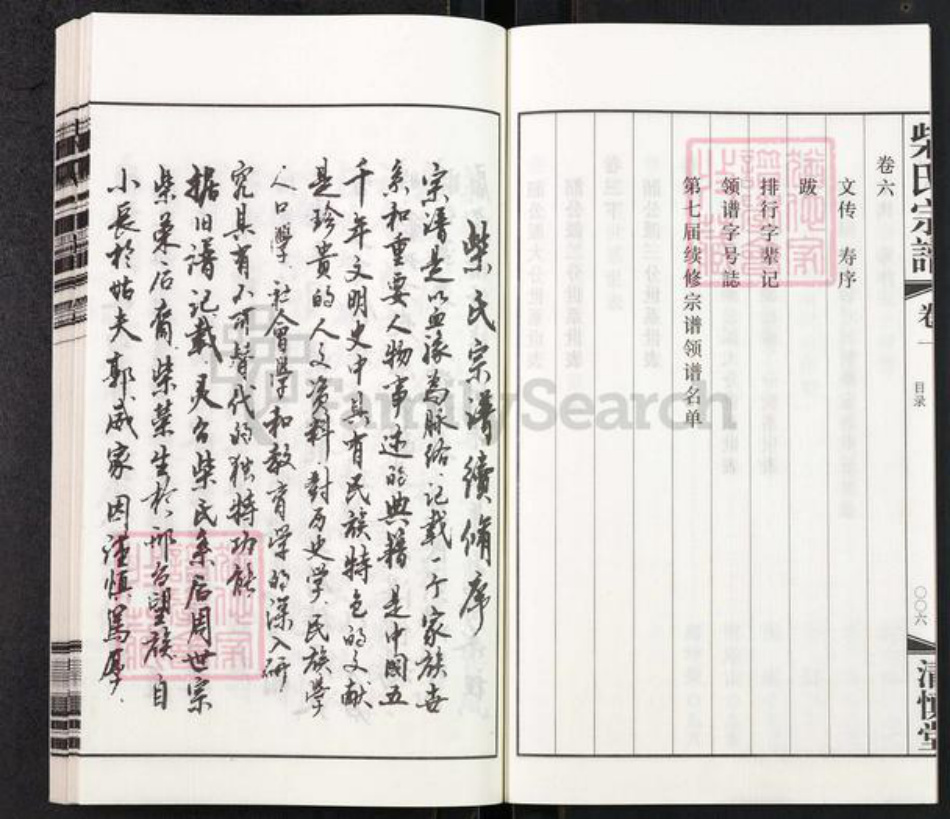 柴氏宗譜
卷一
目录
〇〇六
清慎堂
卷六
文传 寿序
跋
排行字辈记
领谱字号誌
第七届续修宗谱领谱名单
柴氏宗譜續脩序
宗谱是以血缘为脉络.记载一个家族世
系和重要人物事迹的典籍.是中国五
千年文明史中具有民族特色的文献
是珍贵的人文资料.對历史学.民族学
人口學.社会學和教育学的深入研
究具有不可替代的独特功能
据旧譜记載.灵台柴氏系后周世宗
柴荣后裔.柴荣生於邢台望族.自
小長於姑夫郭威家因谨慎篤厚.
FamilySearch